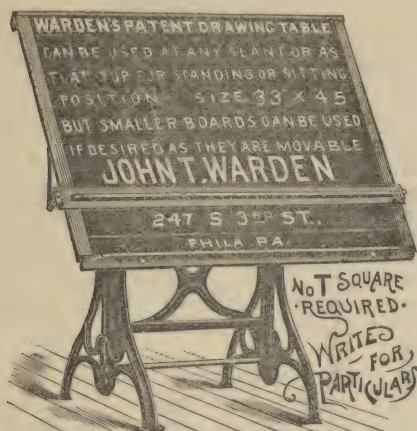 WARDEN'S PATENT DRAWING TABLE
CAN BE USED AT ANY SLANT OR AS
FLAT TOP FOR STANDING OR SITTING
POSITION SIZE 33" X 45
BUT SMALLER BOARDS CAN BE USED
IF DESIRED AS THEY ARE MOVABLE
JOHN T. WARDEN
247 S 3RD ST.,
PHILA PA
NO T SQUARE
·REQUIRED·
WRITE
FOR
PARTICULARS